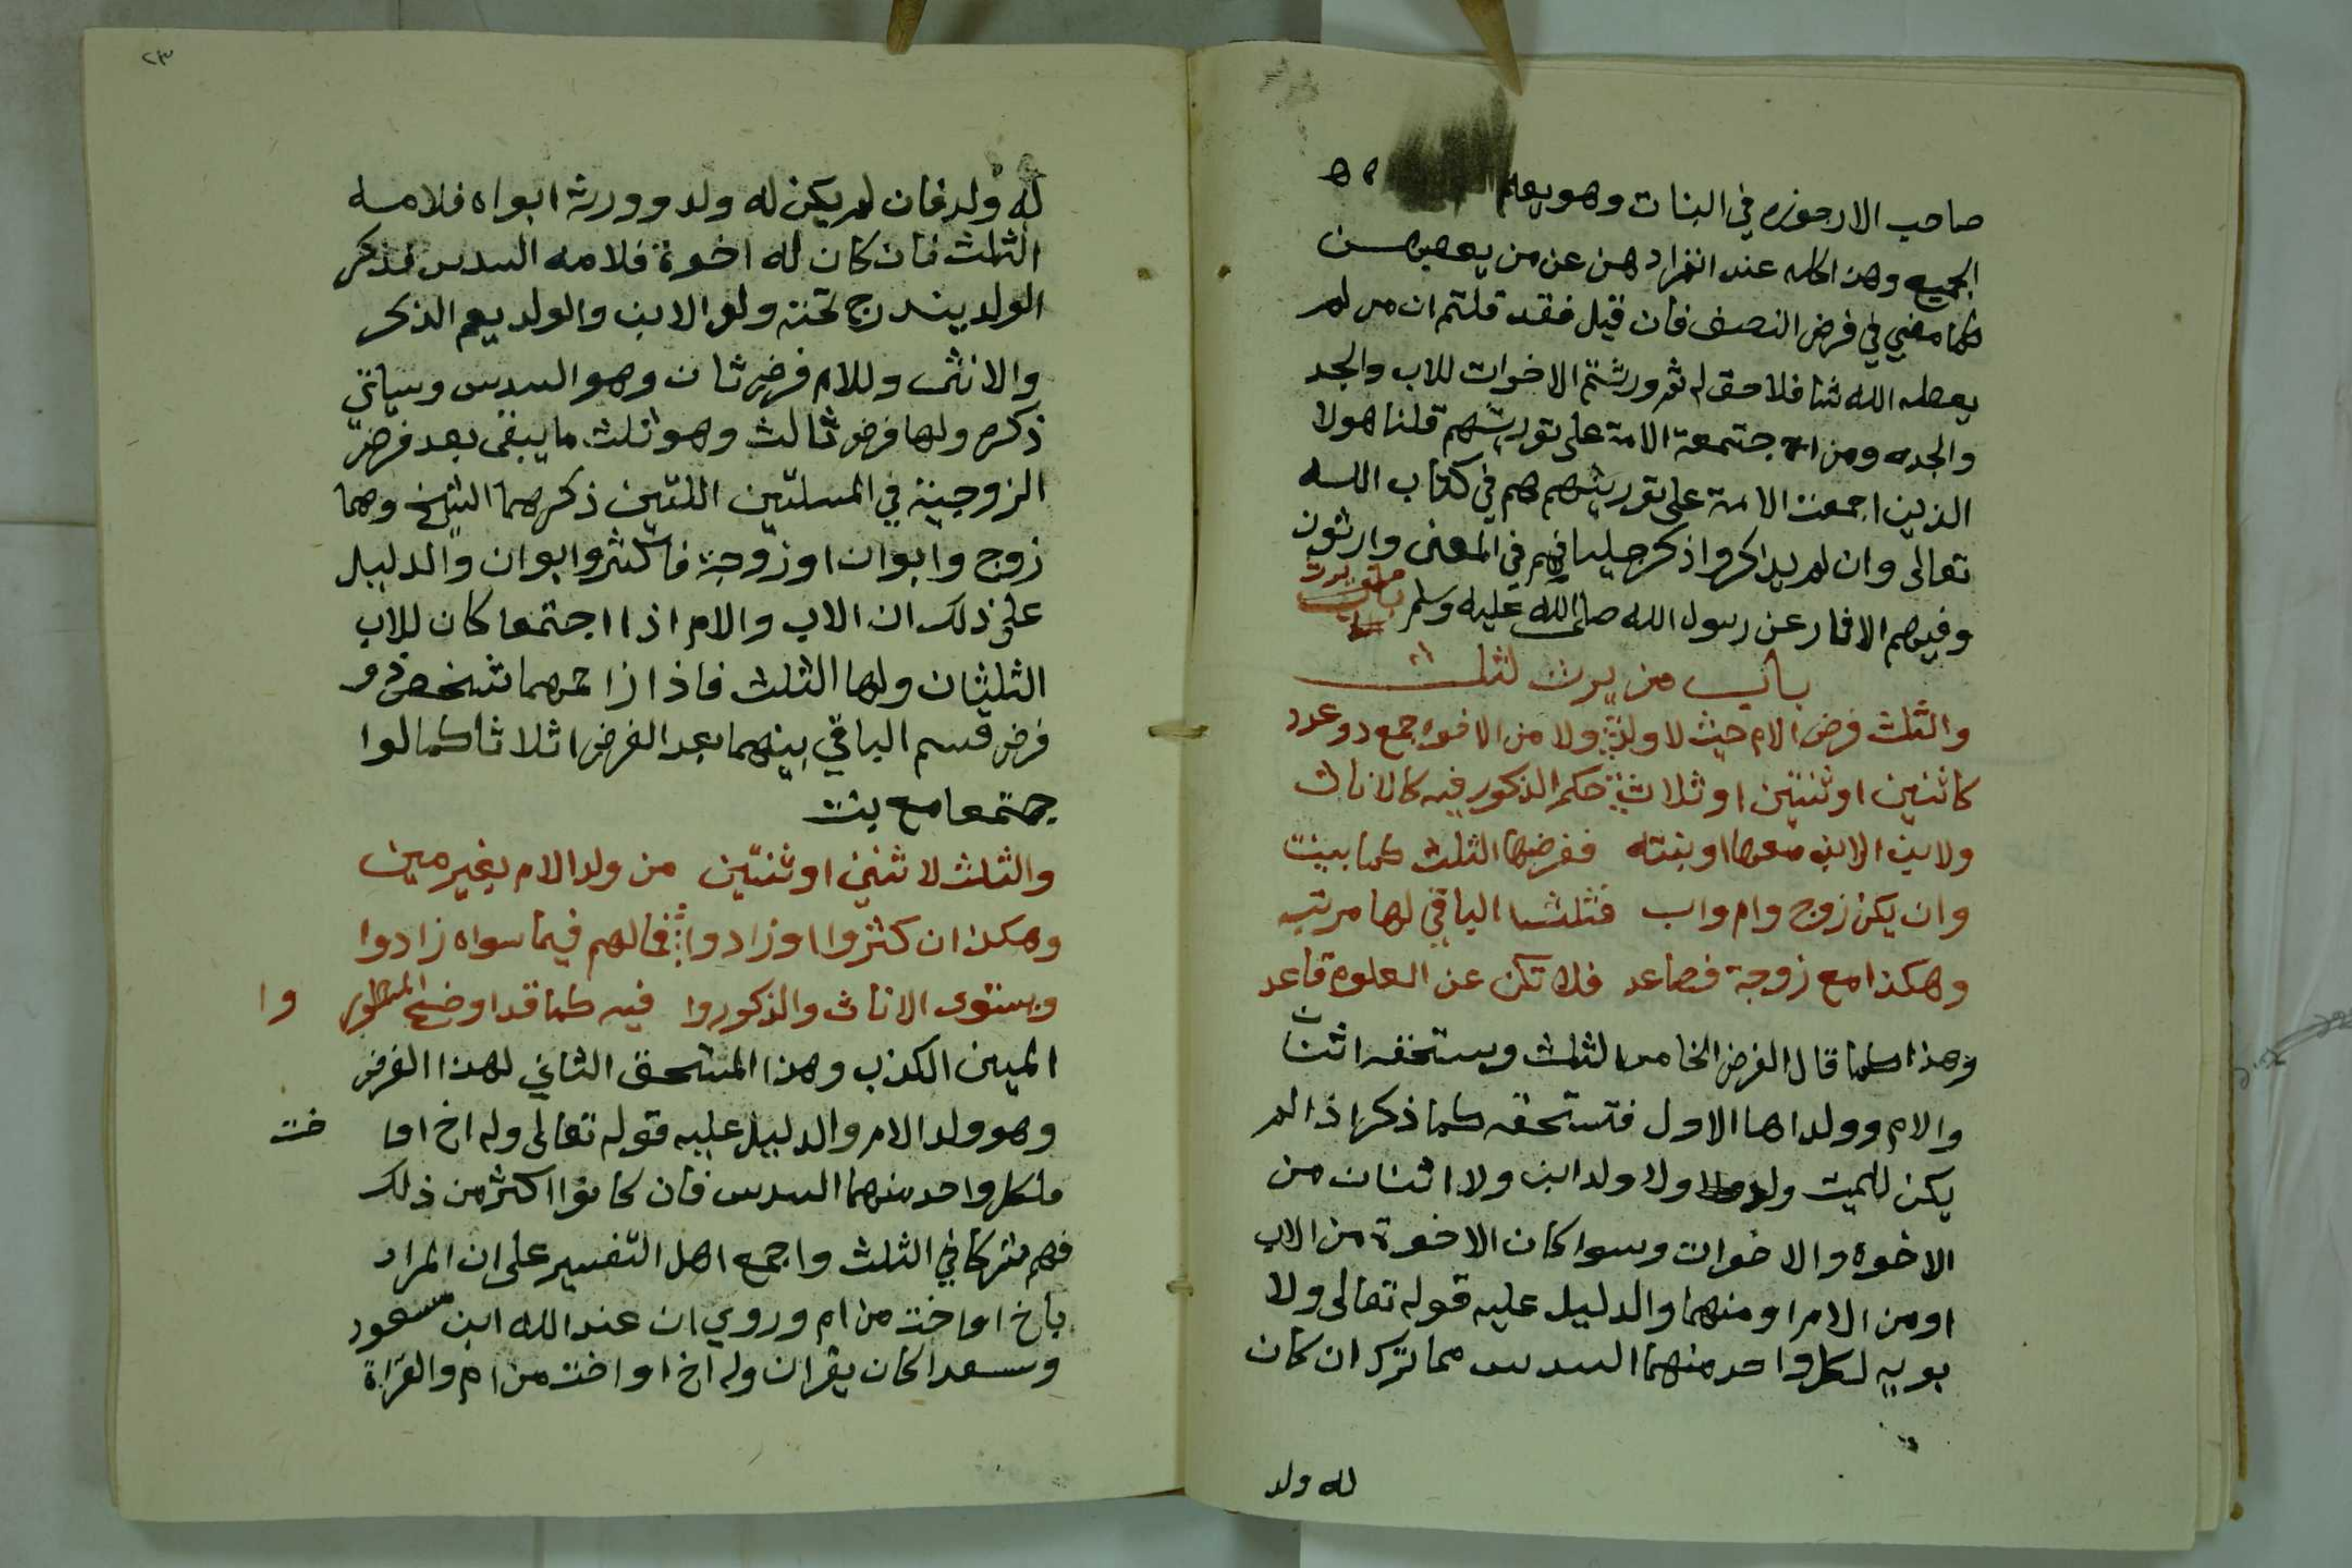 صاحب الارجوزه في البنات وهو يعم
الجميع وهذا كله عند انفرادهن عن من يعصبهن
كما مضي في فرض النصف فان قيل فقد قلتم ان من لم
يعطه الله شيا فلا حق له ثم ورثتم الاخوات للاب والجد
والجده ومن اجتمعة الامة على توريثهم قلنا هولا
الذين اجمعت الامة على توريثهم هم في كتاب الله
تعالى وان لم يذكروا ذكر جليا فهم في المعنى وارثون
وفيهم الاثار عن رسول الله صلى الله عليه وسلم
باب من يرث لثلث
والثلث فرض الام حيث لا ولد ولا من الاخوه جمع ذو عدد
كاثنين او ثنتين او ثلاث حكم الذكور فيه كالاناث
ولابن الابن معها او بنته ففرضها الثلث كما بينت
وان يكن زوج وام واب فثلث الباقي لها مرتب
وهكذا مع زوجة فصاعد فلا تكن عن العلوم قاعد
وهذا كما قال الفرض الخامس الثلث ويستحقه اثنان
والام وولداها الاول فتستحقه كما ذكر اذا لم
يكن للميت ولد ولا ولد ابن ولا اثنان من
الاخوه والاخوات وسوا كان الاخوة من الاب
او من الام او منهما والدليل عليه قوله تعالى ولا
بويه لكل واحد منهما السدس مما ترك ان كان
له ولد
٢٣
له ولد فان لم يكن له ولد وورثه ابواه فلامه
الثلث فان كان له اخوة فلامه السدس فذكر
الولد يندرج تحته ولد الابن والولد يعم الذكر
والانثى وللام فرض ثان وهو السدس وسياتي
ذكره ولها فرض ثالث وهو ثلث ما يبقى بعد فرض
الزوجية في المسلتين اللتين ذكرهما الشيخ وهما
زوج وابوان او زوجة فاكثر وابوان والدليل
على ذلك ان الاب والام اذا اجتمعا كان للاب
الثلثان ولها الثلث فاذا زاحمهما شخص ذو
فرض قسم الباقي بينهما بعد الفرض اثلاثا كما لوا
جتمعا مع بنت
والثلث لاثنين او ثنتين من ولد الام بغير مين
وهكذا ان كثروا او زادوا فمالهم فيما سواه زادوا
ويستوى الاناث والذكوروا فيه كما قد اوضح المسطور وا
المين الكذب وهذا المستحق الثاني لهذا الفرض
وهو ولد الام والدليل عليه قوله تعالى وله اخ اوا خت
فلكل واحد منهما السدس فان كانوا اكثر من ذلك
فهم شركا في الثلث واجمع اهل التفسير على ان المراد
باخ اواخت من ام وروي ان عبد الله ابن مسعود
وسعد كان يقران وله اخ او اخت من ام والقراة